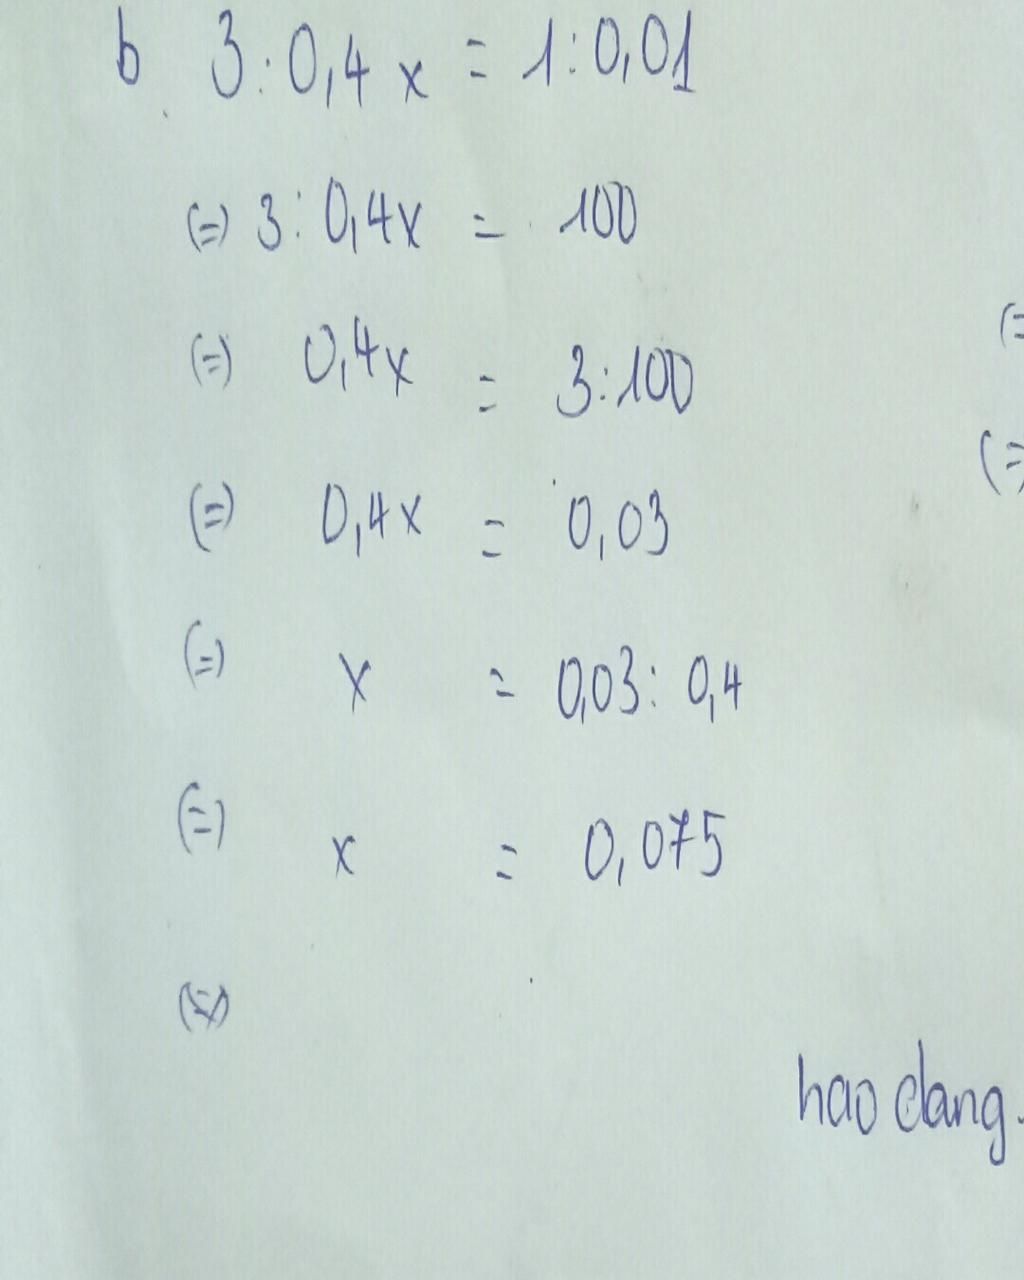 b 3 : 0,4 x = 1 : 0,01
(=) 3 : 0,4x = 100
(=) 0,4x = 3:100
(=) 0,4x = 0,03
(=) x = 0,03 : 0,4
(=) x = 0,075
hao dang.